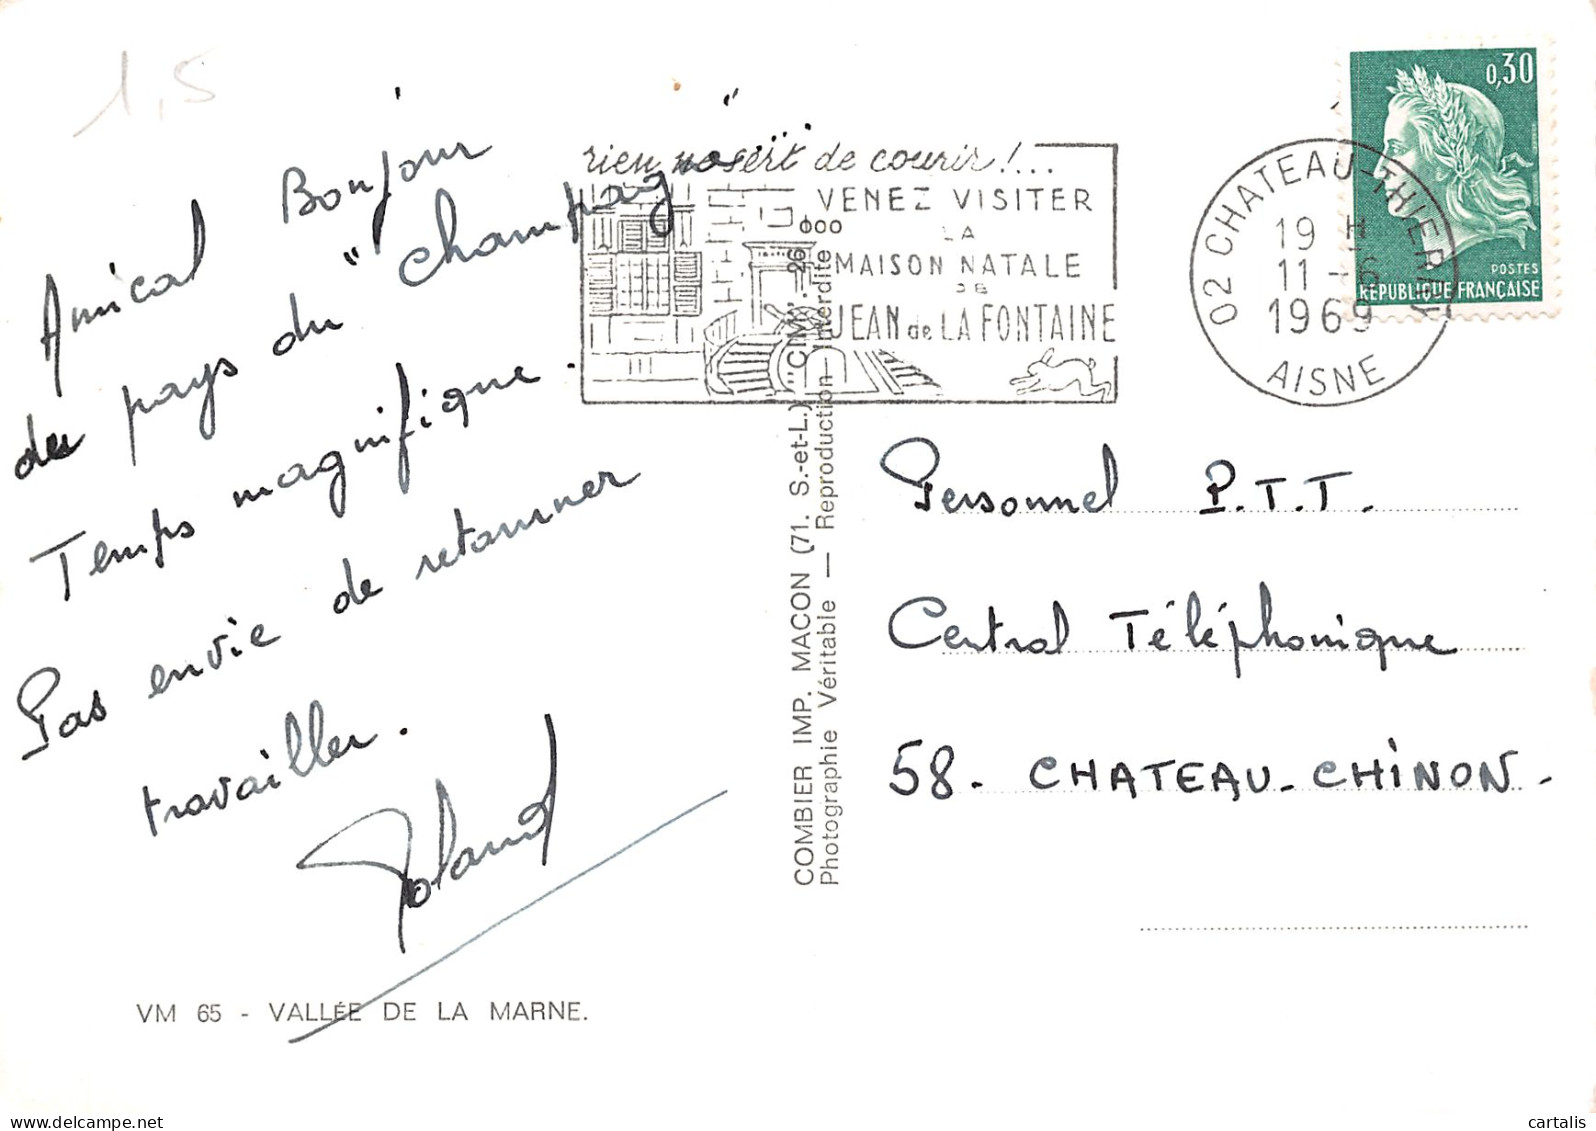 1,5
Amical Bonjour
du pays du "champagne"...
Temps magnifique.
Pas envie de retourner
travailler.
Roland
VM 65 - VALLÉE DE LA MARNE.
COMBIER IMP. MACON (71. S.-et-L.) "CIM".
Photographie Véritable — Reproduction Interdite
rien ne sert de courir!...
VENEZ VISITER
LA
MAISON NATALE
DE
JEAN de LA FONTAINE
02 CHATEAU-THIERRY
19 H
11-6
1969
AISNE
0,30
POSTES
RÉPUBLIQUE FRANÇAISE
Personnel P.T.T.
Central Téléphonique
58- CHATEAU-CHINON-
delcampe.net
cartalis